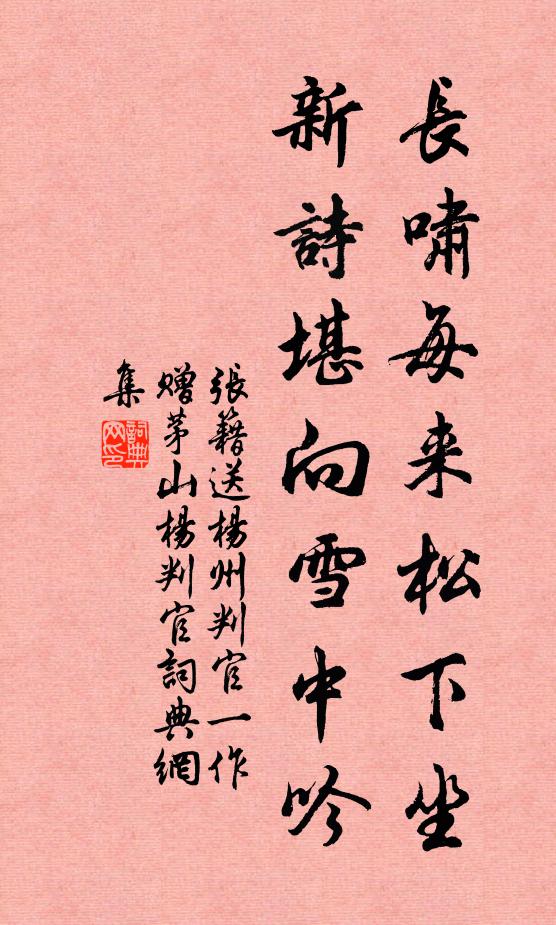 長嘯每来松下坐
新詩堪向雪中吟
張籍送楊州判官一作
贈茅山楊判官詞典網
集
詞典網印